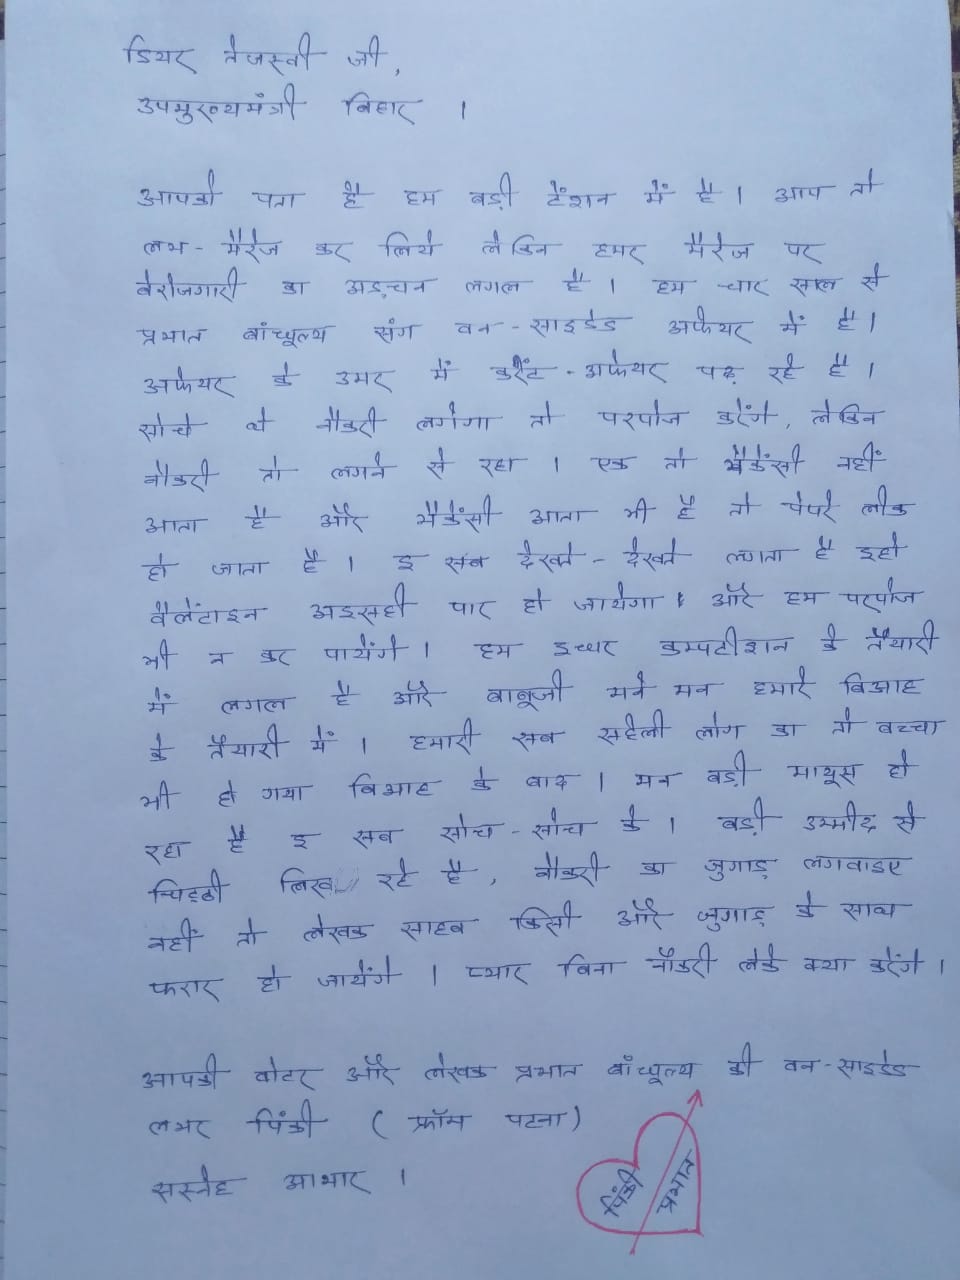 डियर तेजस्वी जी,
उपमुख्यमंत्री बिहार ।
आपको पता है हम बड़ी टेंशन में है । आप तो
लभ - मैरेज कर लिये लेकिन हमर मैरेज पर
बेरोजगारी का अड़चन लगल है । हम चार साल से
प्रभात बांधुल्य संग वन - साइडेड अफेयर में है ।
अफेयर के उमर में करेंट - अफेयर पढ़ रहे है ।
सोचे थे नौकरी लगेगा तो परपोज करेंगे , लेकिन
नौकरी तो लगने से रहा । एक तो भैकेंसी नहीं
आता है और भैकेंसी आता भी है तो पेपरे लीक
हो जाता है । इ सब देखते - देखते लगता है इहो
वैलेंटाइन अइसही पार हो जायेगा । और हम परपोज
भी न कर पायेंगे । हम इधर कम्पटीशन के तैयारी
में लगल है और बाबूजी मने मन हमारे बिआह
के तैयारी में । हमारी सब सहेली लोग का तो बच्चा
भी हो गया बिआह के बाद । मन बड़ी मायूस हो
रहा है इ सब सोच - सोच के । बड़ी उम्मीद से
चिट्ठी लिख रहे है , नौकरी का जुगाड़ लगवाइए
नहीं तो लेखक साहब किसी और जुगाड़ के साथ
फरार हो जायेंगे । प्यार बिना नौकरी लेके क्या करेंगे ।
आपकी वोटर और लेखक प्रभात बांधुल्य की वन - साइडेड
लभर पिंकी ( फ्रॉम पटना )
सस्नेह आभार ।
पिंकी
प्रभात